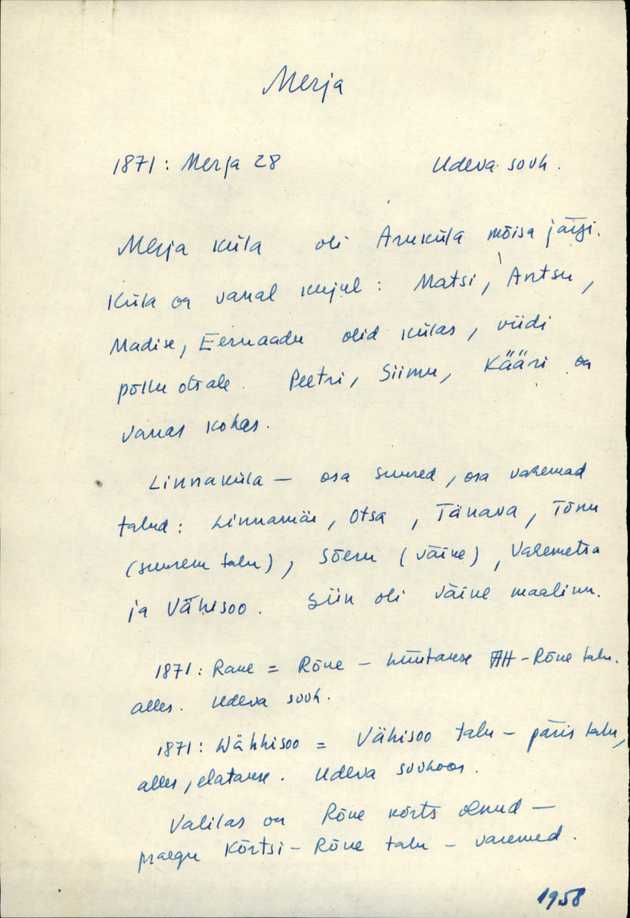 Merja
1871: Merja 28 Udeva sovh.
Merja küla oli Aruküla mõisa järgi.
Küla on vanal kujul: Matsi, Antsu,
Madise, Eernaadu olid külas, viidi
põllu otsale. Peetri, Siimu, Kääri on
vanas kohas.
Linnaküla — osa suured, osa vahemad
talud: Linnamäe, Otsa, Tänava, Tõnu
(suurem talu), Sõeru (väine), Vahemetsa
ja Vähisoo. Siin oli väine maalinn.
1871: Rane = Rõue — hüütakse -Rõue talu.
alles. Udeva sovh.
1871: Wähhisoo = Vähisoo talu — päris talu,
alles, elatakse. Udeva sovhoos.
Valilas on Rõue kõrts olnud —
praegu Kõrtsi-Rõue talu — varemed.
1958